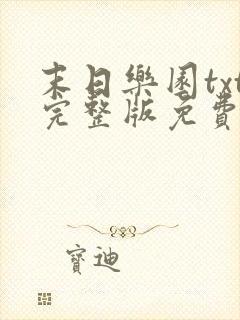 末日樂園txt
完整版免費
寶迪